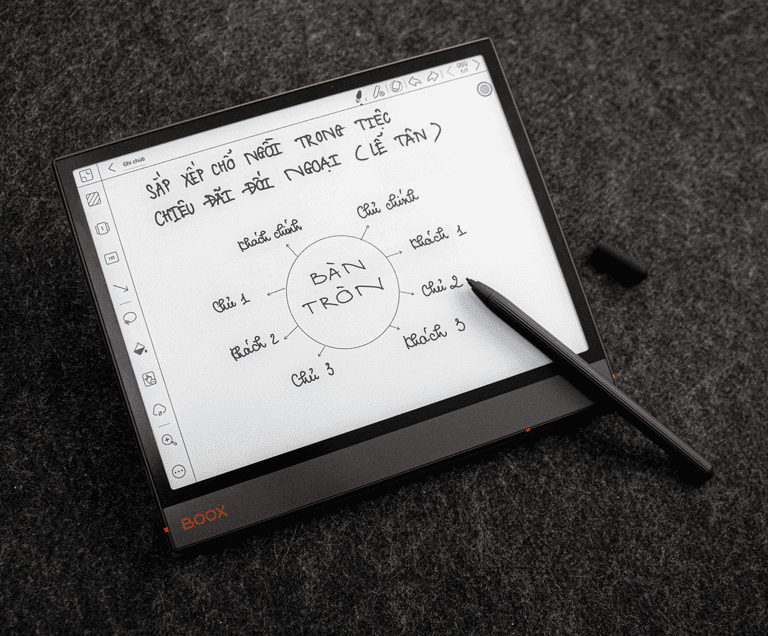 Ghi chú
SẮP XẾP CHỖ NGỒI TRONG TIỆC
CHIÊU ĐÃI ĐỐI NGOẠI (LỄ TÂN)
Khách chính
Chủ chính
Khách 1
BÀN
TRÒN
Chủ 1
Chủ 2
Khách 2
Khách 3
Chủ 3
BOOX